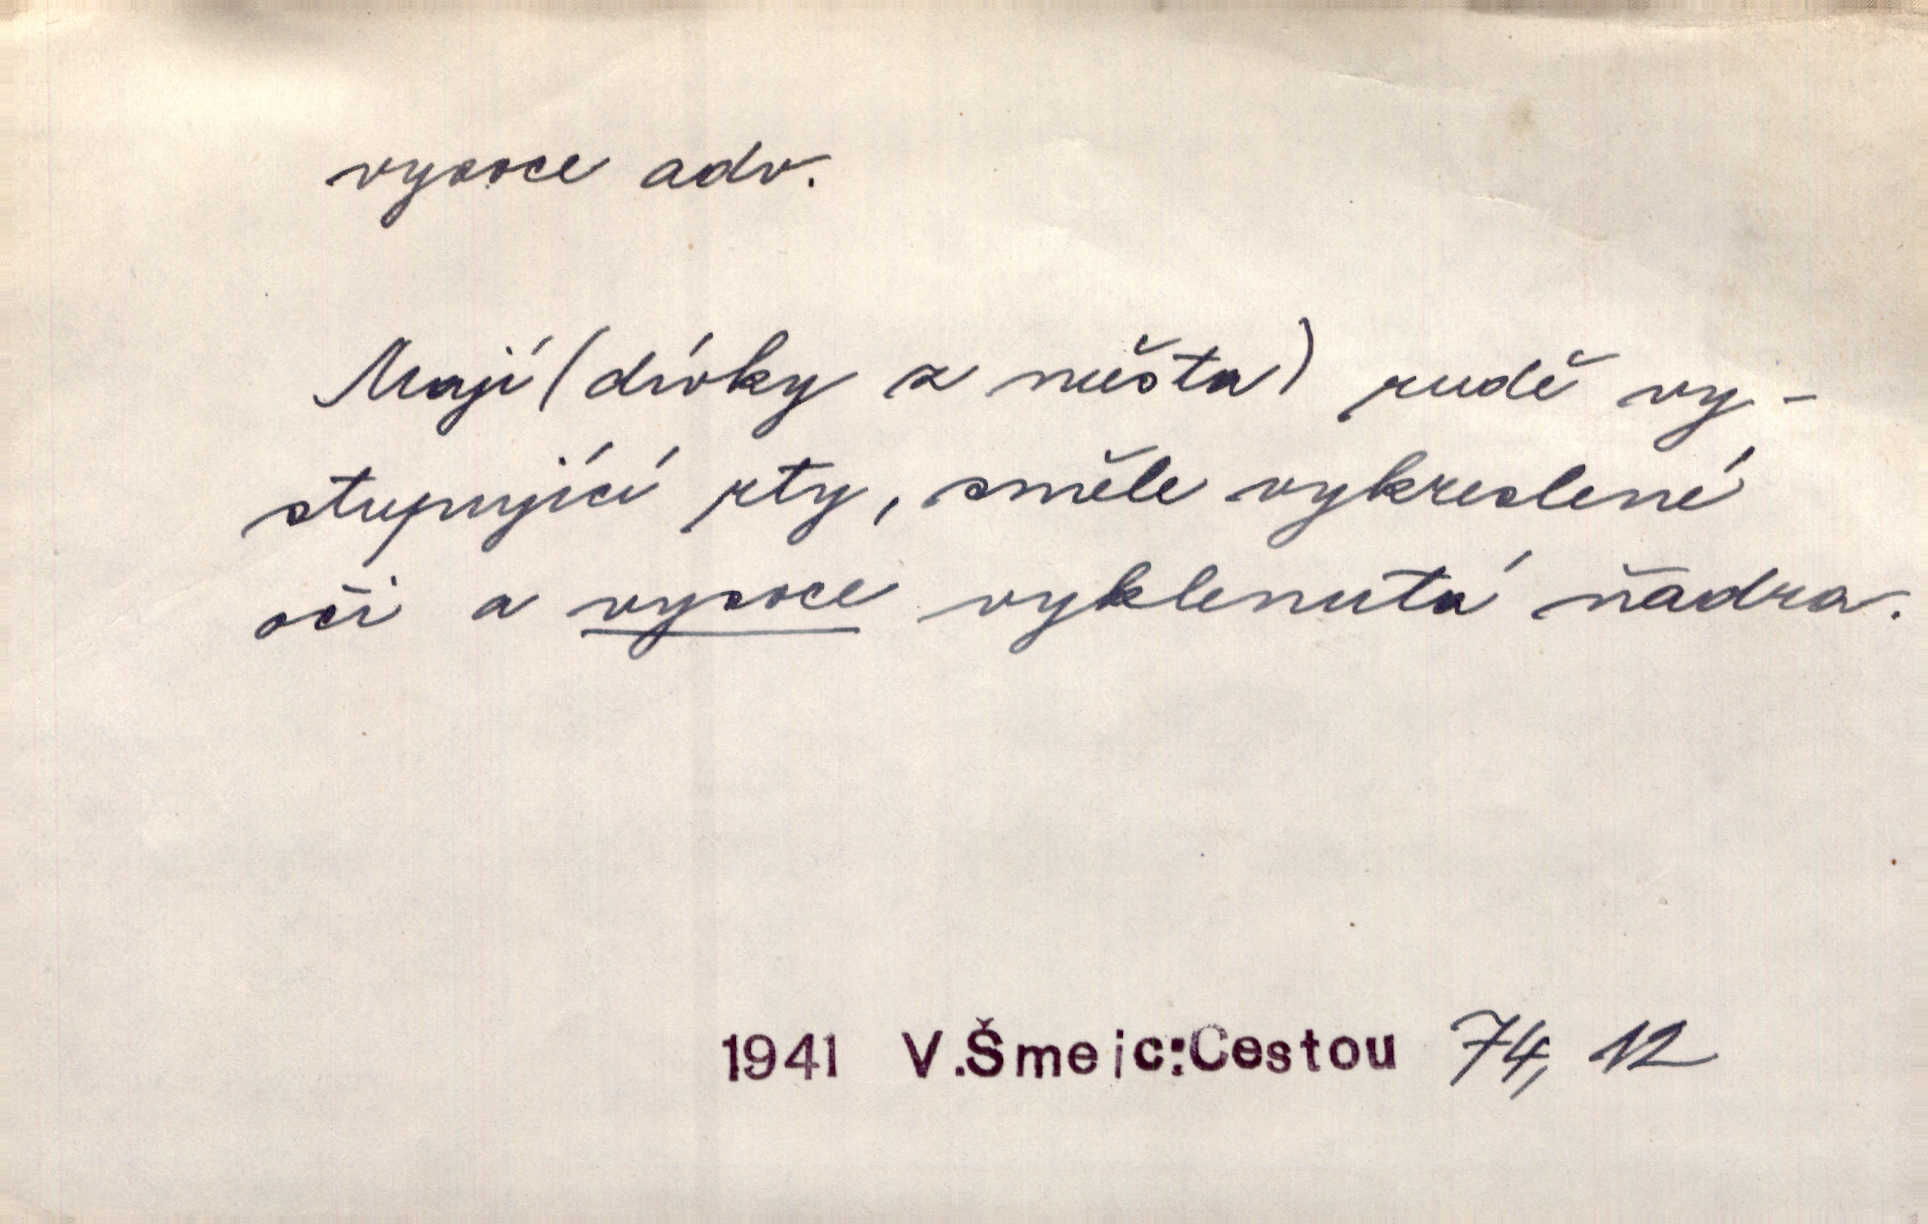 vysoce adv.
Mají (dívky z města) rudě vy-
stupující rty, směle vykreslené
oči a vysoce vyklenutá ňadra.
1941 V.Šmejc:Cestou 74, 12